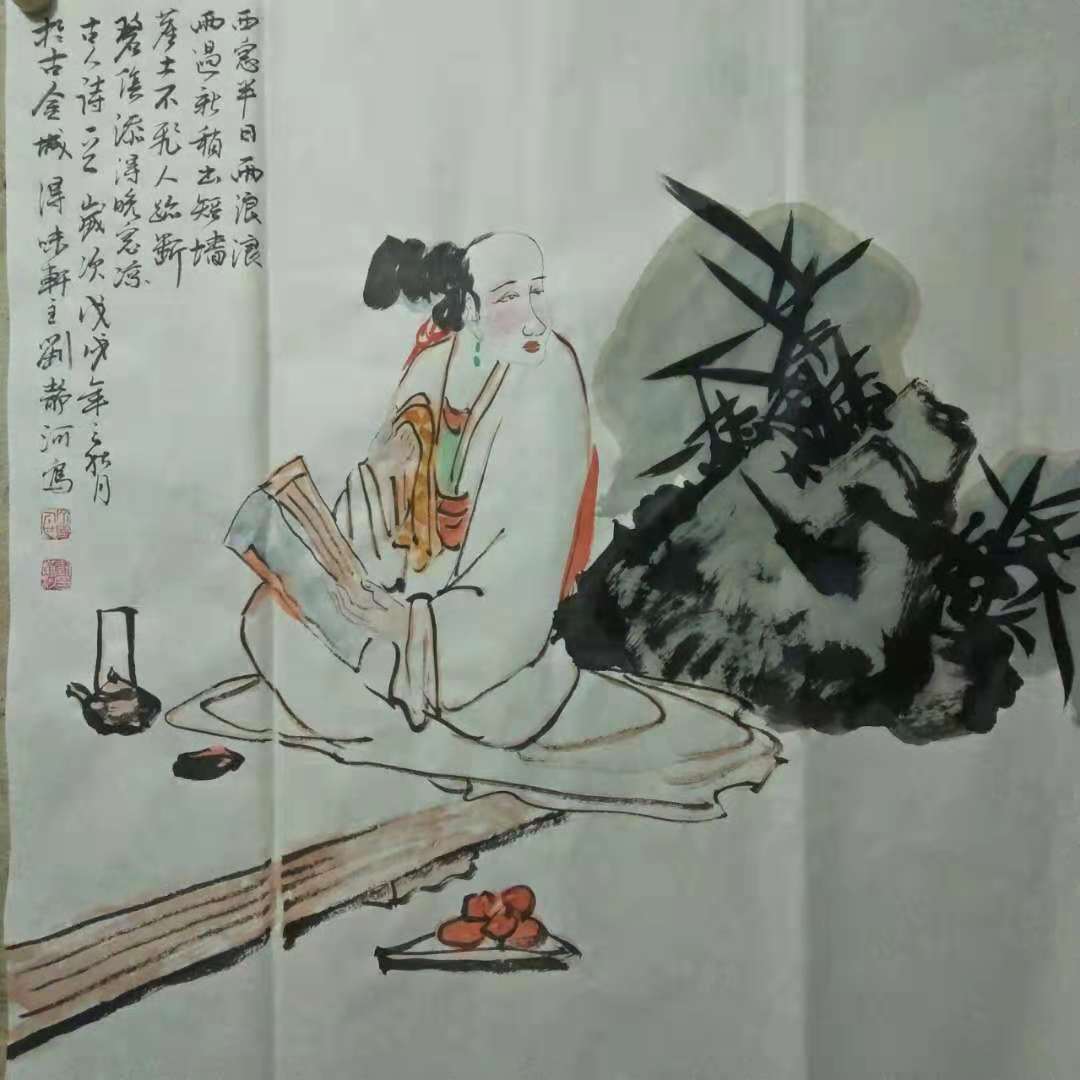 西窗半日雨浪浪
雨過新稍出短墻
塵土不飛人跡斷
碧陰添得晚窗凉
古人詩一首 歲次戊戌年之秋月
於古金城 得味軒主劉静河寫